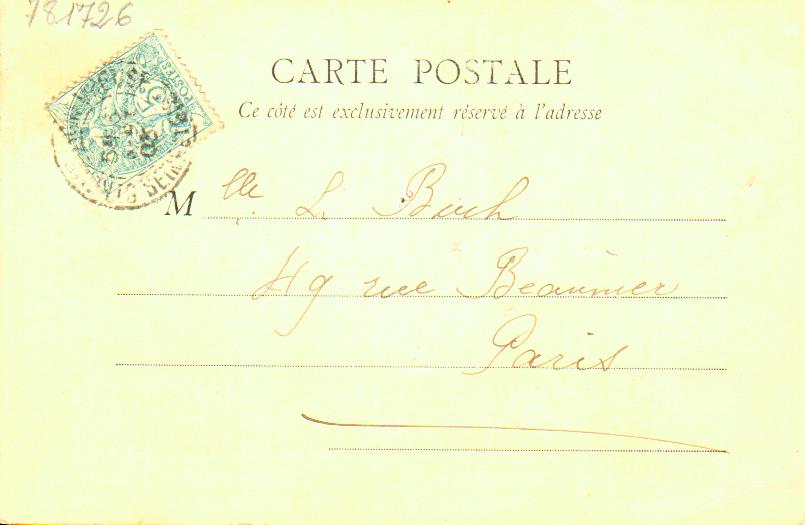 781726
CARTE POSTALE
Ce côté est exclusivement réservé à l'adresse
Mlle L. Buch
49 rue Beaunier
Paris